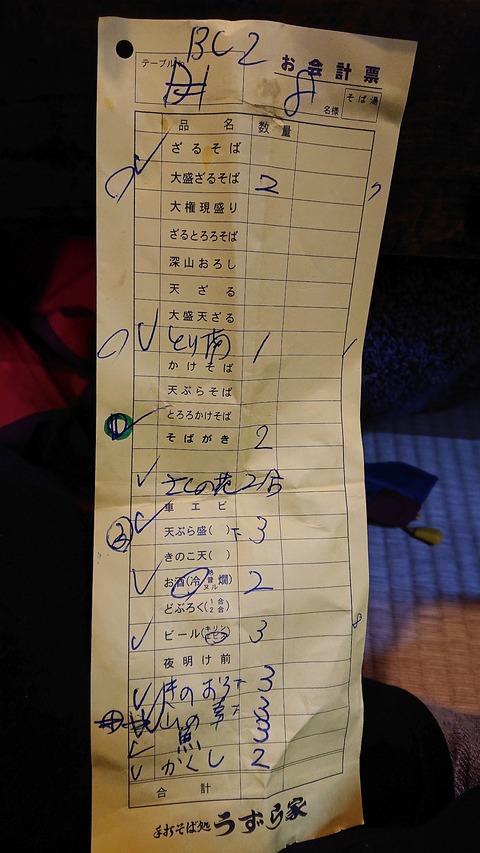 BC2
お会計票
テーブルNo.
8 名様 そば湯
品名 数量
ざるそば
大盛ざるそば 2
大権現盛り
ざるとろろそば
深山おろし
天ざる
大盛天ざる
とり南 1
かけそば
天ぷらそば
とろろかけそば
そばがき 2
車エビ
天ぷら盛( ) 下 3
きのこ天( )
お酒(冷 熱 普 ヌル 燗) 2
どぶろく(1合 2合)
ビール(キリン) 3
夜明け前
きのおろ下 3
山の幸下 3
馬 3
かくし 2
合計
手打そば処 うずら家